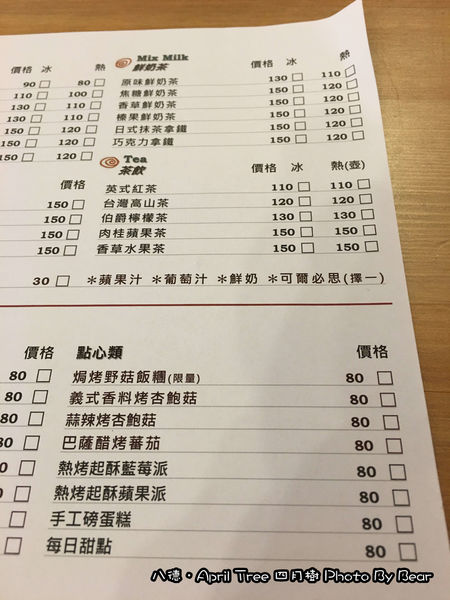 Mix Milk
價格 冰 熱 鮮奶茶 價格 冰 熱
90 80 原味鮮奶茶 130 110
110 100 焦糖鮮奶茶 150 120
130 110 香草鮮奶茶 150 120
130 110 榛果鮮奶茶 150 120
150 120 日式抹茶拿鐵 150 120
150 120 巧克力拿鐵 150 120
Tea
茶飲 價格 冰 熱(壺)
價格 英式紅茶 110 110
150 台灣高山茶 120 120
150 伯爵檸檬茶 130 130
150 肉桂蘋果茶 150 150
150 香草水果茶 150 150
30 *蘋果汁 *葡萄汁 *鮮奶 *可爾必思(擇一)
價格 點心類 價格
80 焗烤野菇飯糰(限量) 80
80 義式香料烤杏鮑菇 80
80 蒜辣烤杏鮑菇 80
80 巴薩醋烤蕃茄 80
熱烤起酥藍莓派 80
熱烤起酥蘋果派 80
手工磅蛋糕 80
每日甜點 80
八德·April Tree 四月樹 Photo By Bear